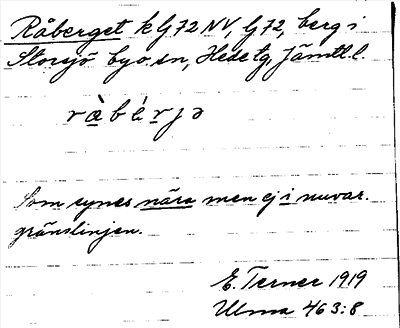 Råberget k G 72 NV, G 72, berg i
Storsjö by o. sn, Hede tg, Jämtl. l.
ràbérjə
Som synes nära men ej i nuvar.
gränslinjen.
E. Terner 1919
Ulma 463:8